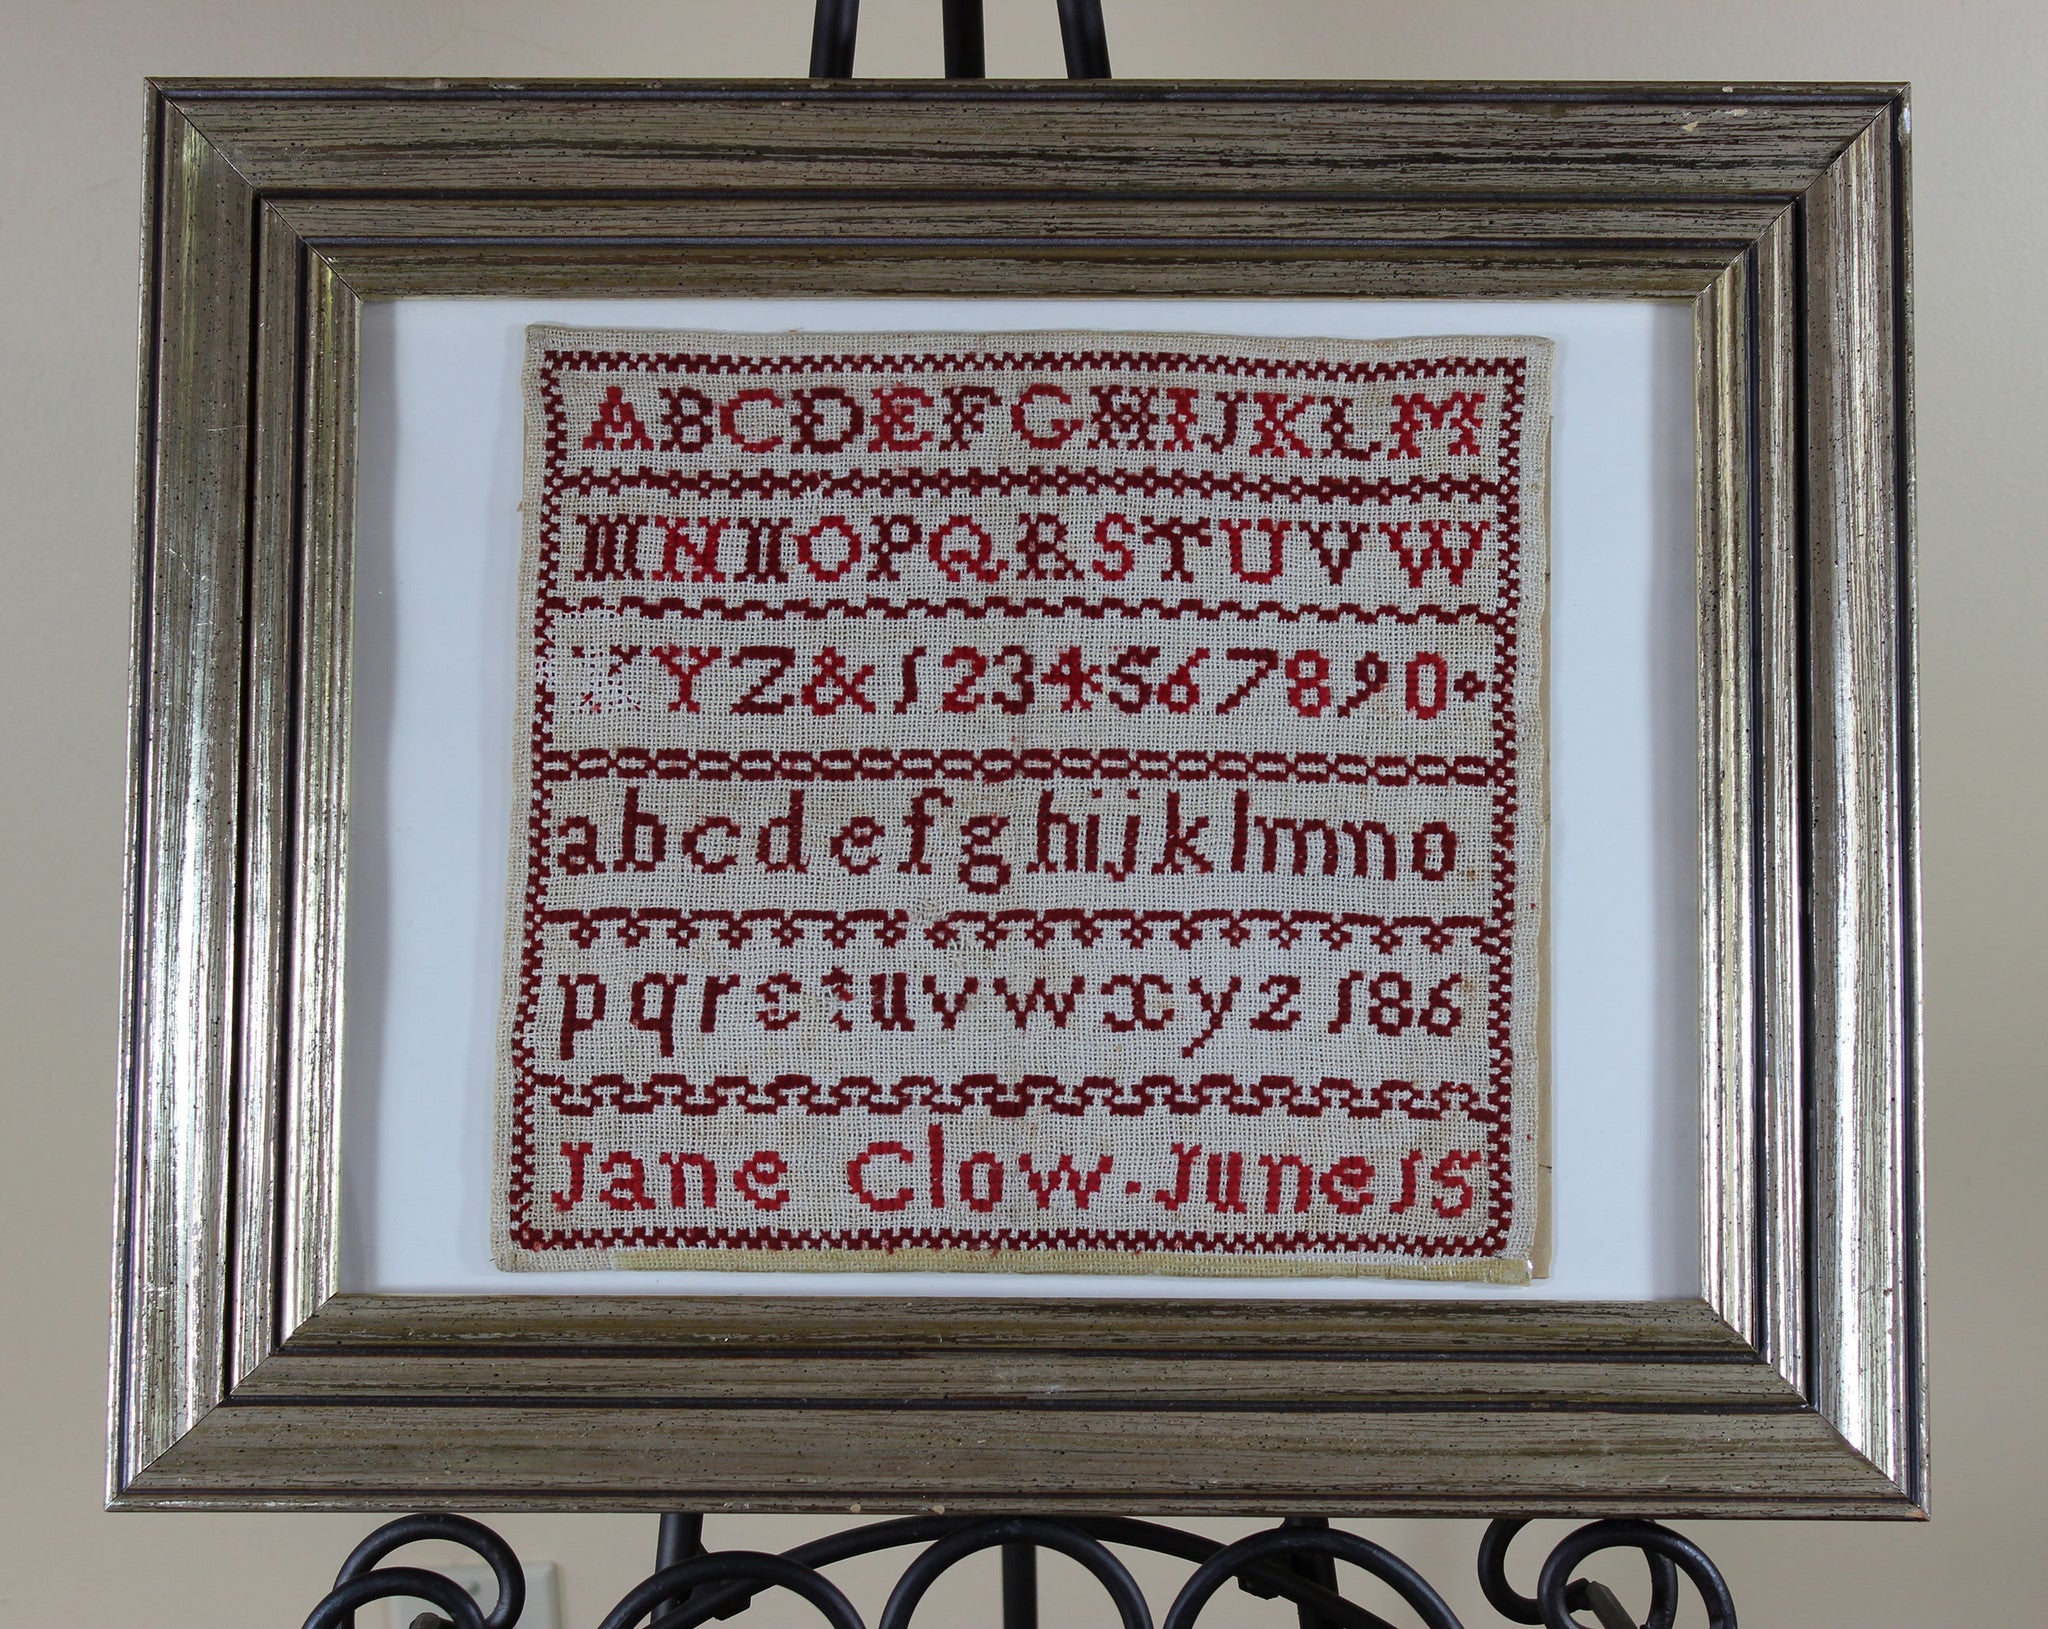 ABCDEFGHIJKLM
MNNOPQRSTUVW
YZ&1234567890
abcdefghijklmno
pqrstuvwxyz 186
Jane Clow. June 15